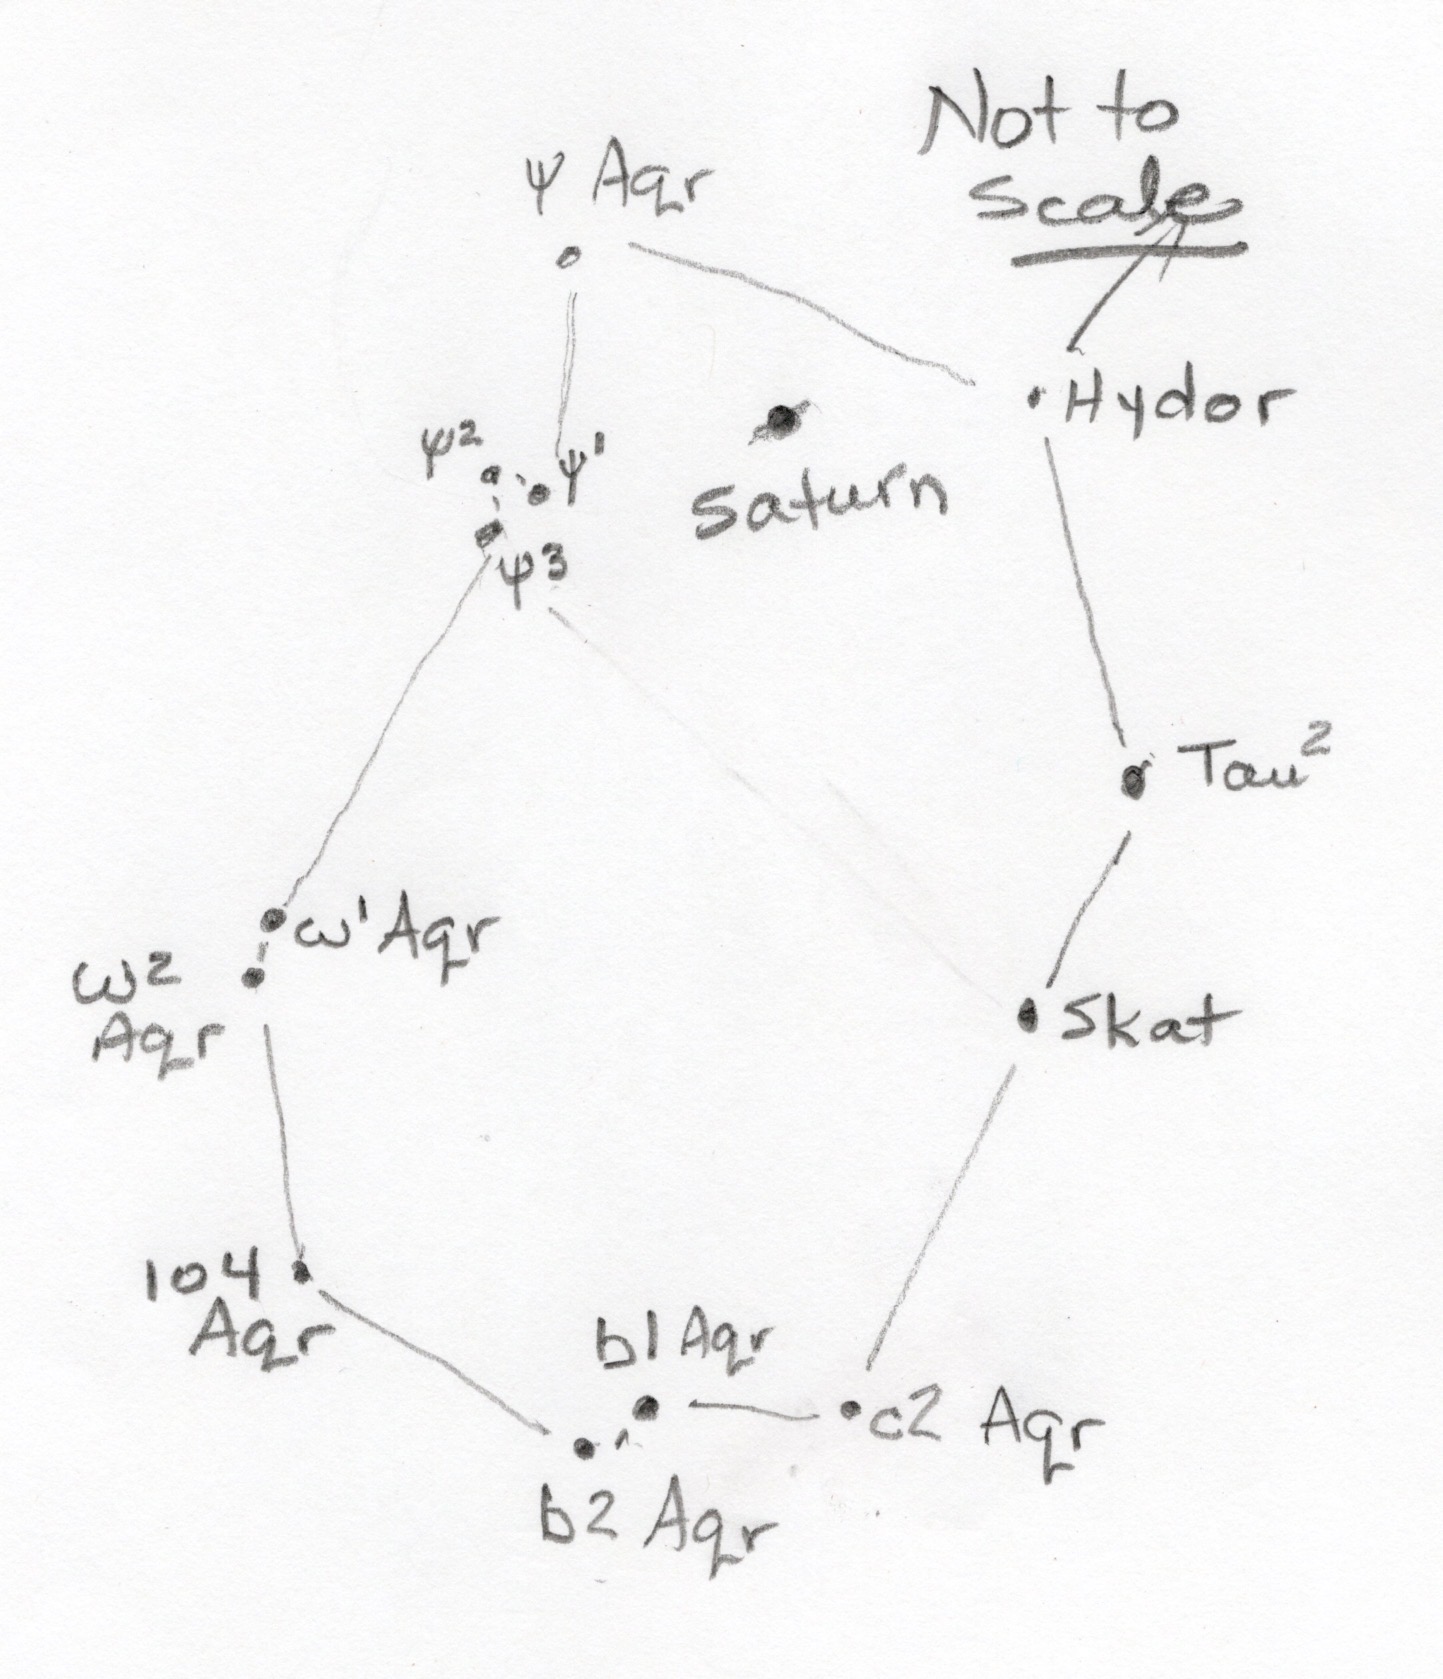 Not to
Scale
ψ Aqr
Hydor
Saturn
ψ2
ψ1
ψ3
Tau2
ω1 Aqr
ω2
Aqr
Skat
104
Aqr
b1 Aqr
c2 Aqr
b2 Aqr